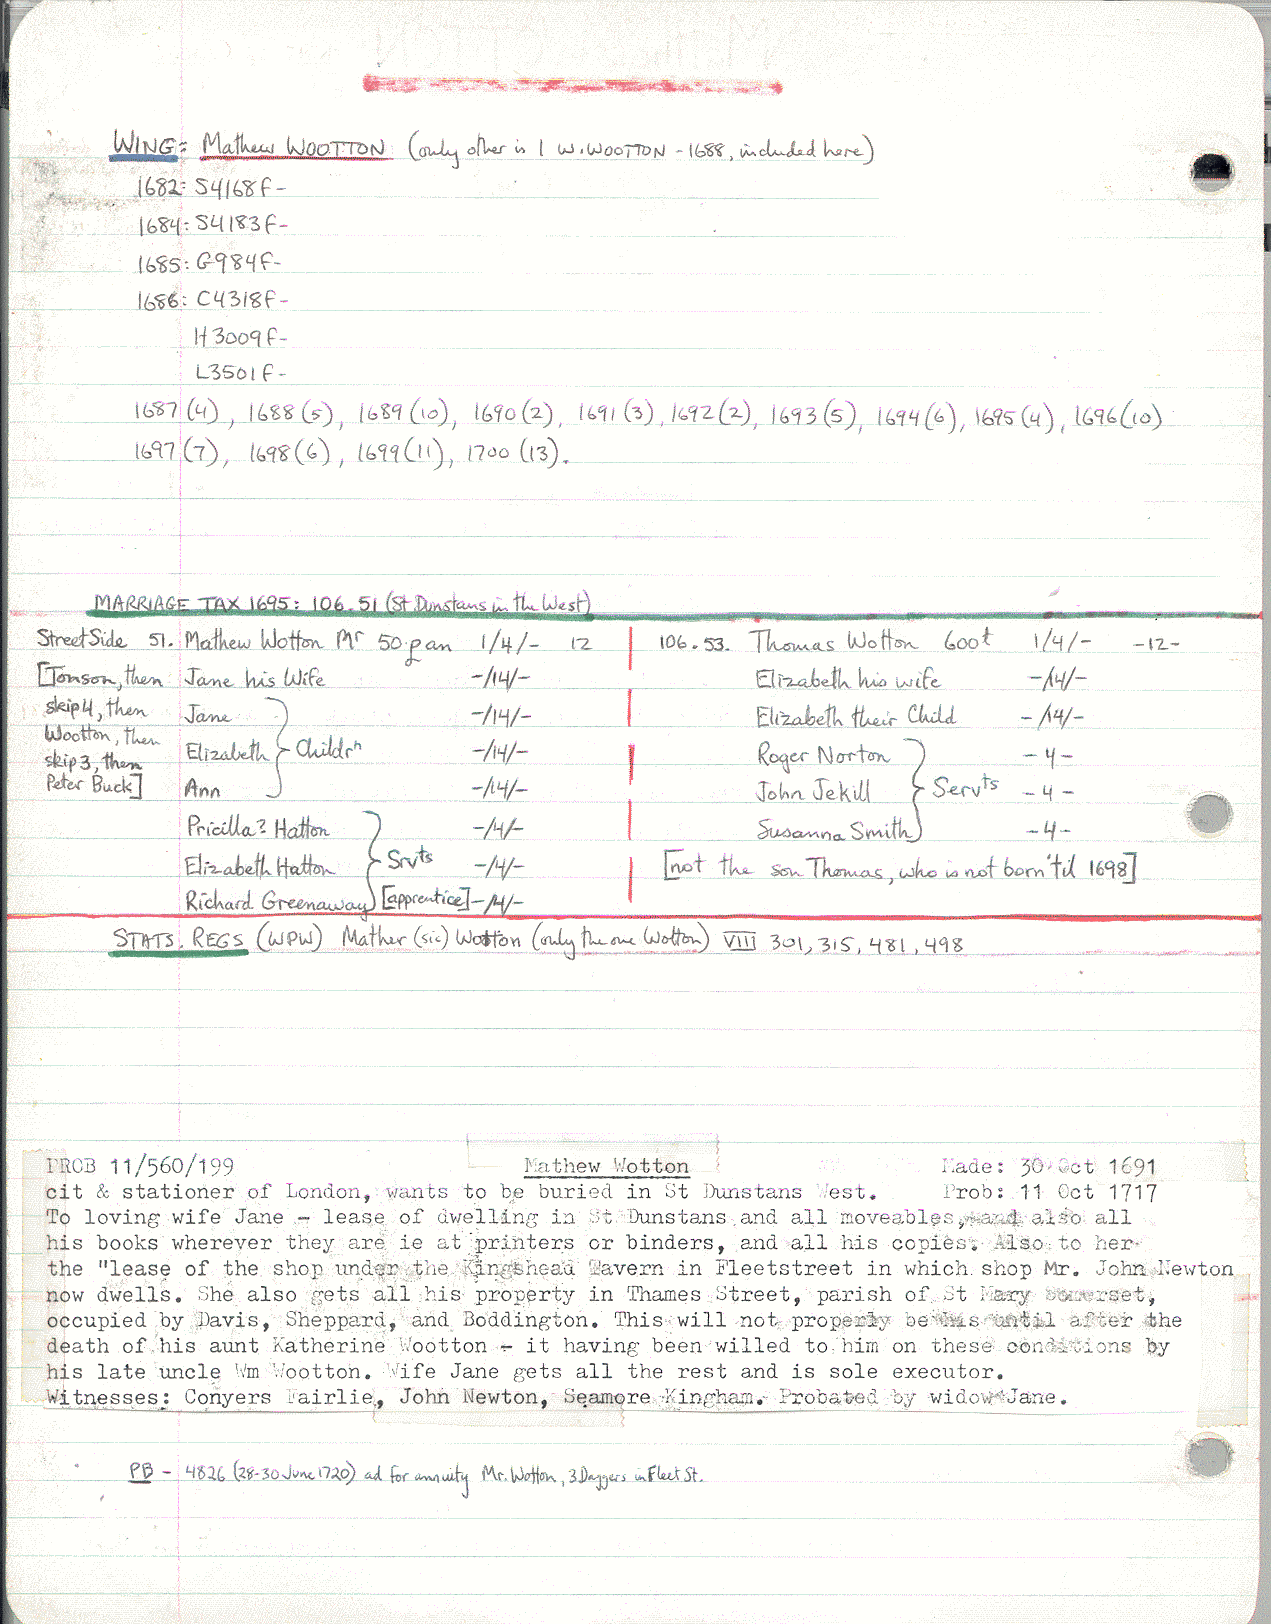 WING: Mathew WOOTTON (only other is 1 W. WOOTTON - 1688, included here)
1682: S4168F-
1684: S4183F-
1685: G984F-
1686: C4318F-
H3009F-
L3501F-
1687 (4), 1688 (5), 1689 (10), 1690 (2), 1691 (3), 1692 (2), 1693 (5), 1694 (6), 1695 (4), 1696 (10)
1697 (7), 1698 (6), 1699 (11), 1700 (13).
MARRIAGE TAX 1695: 106.51 (St Dunstans in the West)
Street Side 51. Mathew Wotton Mr 50 pan 1/4/- 12
[Tonson, then Jane his Wife -/14/-
skip 4, then Jane -/14/-
Wootton, then
skip 3, then Elizabeth Childrn -/14/-
Peter Buck] Ann -/14/-
Pricilla? Hatton -/4/-
Elizabeth Hatton Srvts -/4/-
Richard Greenaway [apprentice] -/4/-
106.53. Thomas Wotton 600t 1/4/- -12-
Elizabeth his wife -/14/-
Elizabeth their Child -/14/-
Roger Norton -4-
John Jekill Servts -4-
Susanna Smith -4-
[not the son Thomas, who is not born 'til 1698]
STATS. REGS (WPW) Mather (sic) Wotton (only the one Wotton) VIII 301, 315, 481, 498
PROB 11/560/199 Mathew Wotton Made: 30 Oct 1691
cit & stationer of London, wants to be buried in St Dunstans West. Prob: 11 Oct 1717
To loving wife Jane - lease of dwelling in St Dunstans and all moveables, and also all
his books wherever they are ie at printers or binders, and all his copies. Also to her
the "lease of the shop under the Kingshead Tavern in Fleetstreet in which shop Mr. John Newton
now dwells. She also gets all his property in Thames Street, parish of St Mary Somerset,
occupied by Davis, Sheppard, and Boddington. This will not properly be his until after the
death of his aunt Katherine Wootton - it having been willed to him on these conditions by
his late uncle Wm Wootton. Wife Jane gets all the rest and is sole executor.
Witnesses: Conyers Fairlie, John Newton, Seamore Kingham. Probated by widow Jane.
PB - 4826 (28-30 June 1720) ad for annuity Mr. Wotton, 3 Daggers in Fleet St.